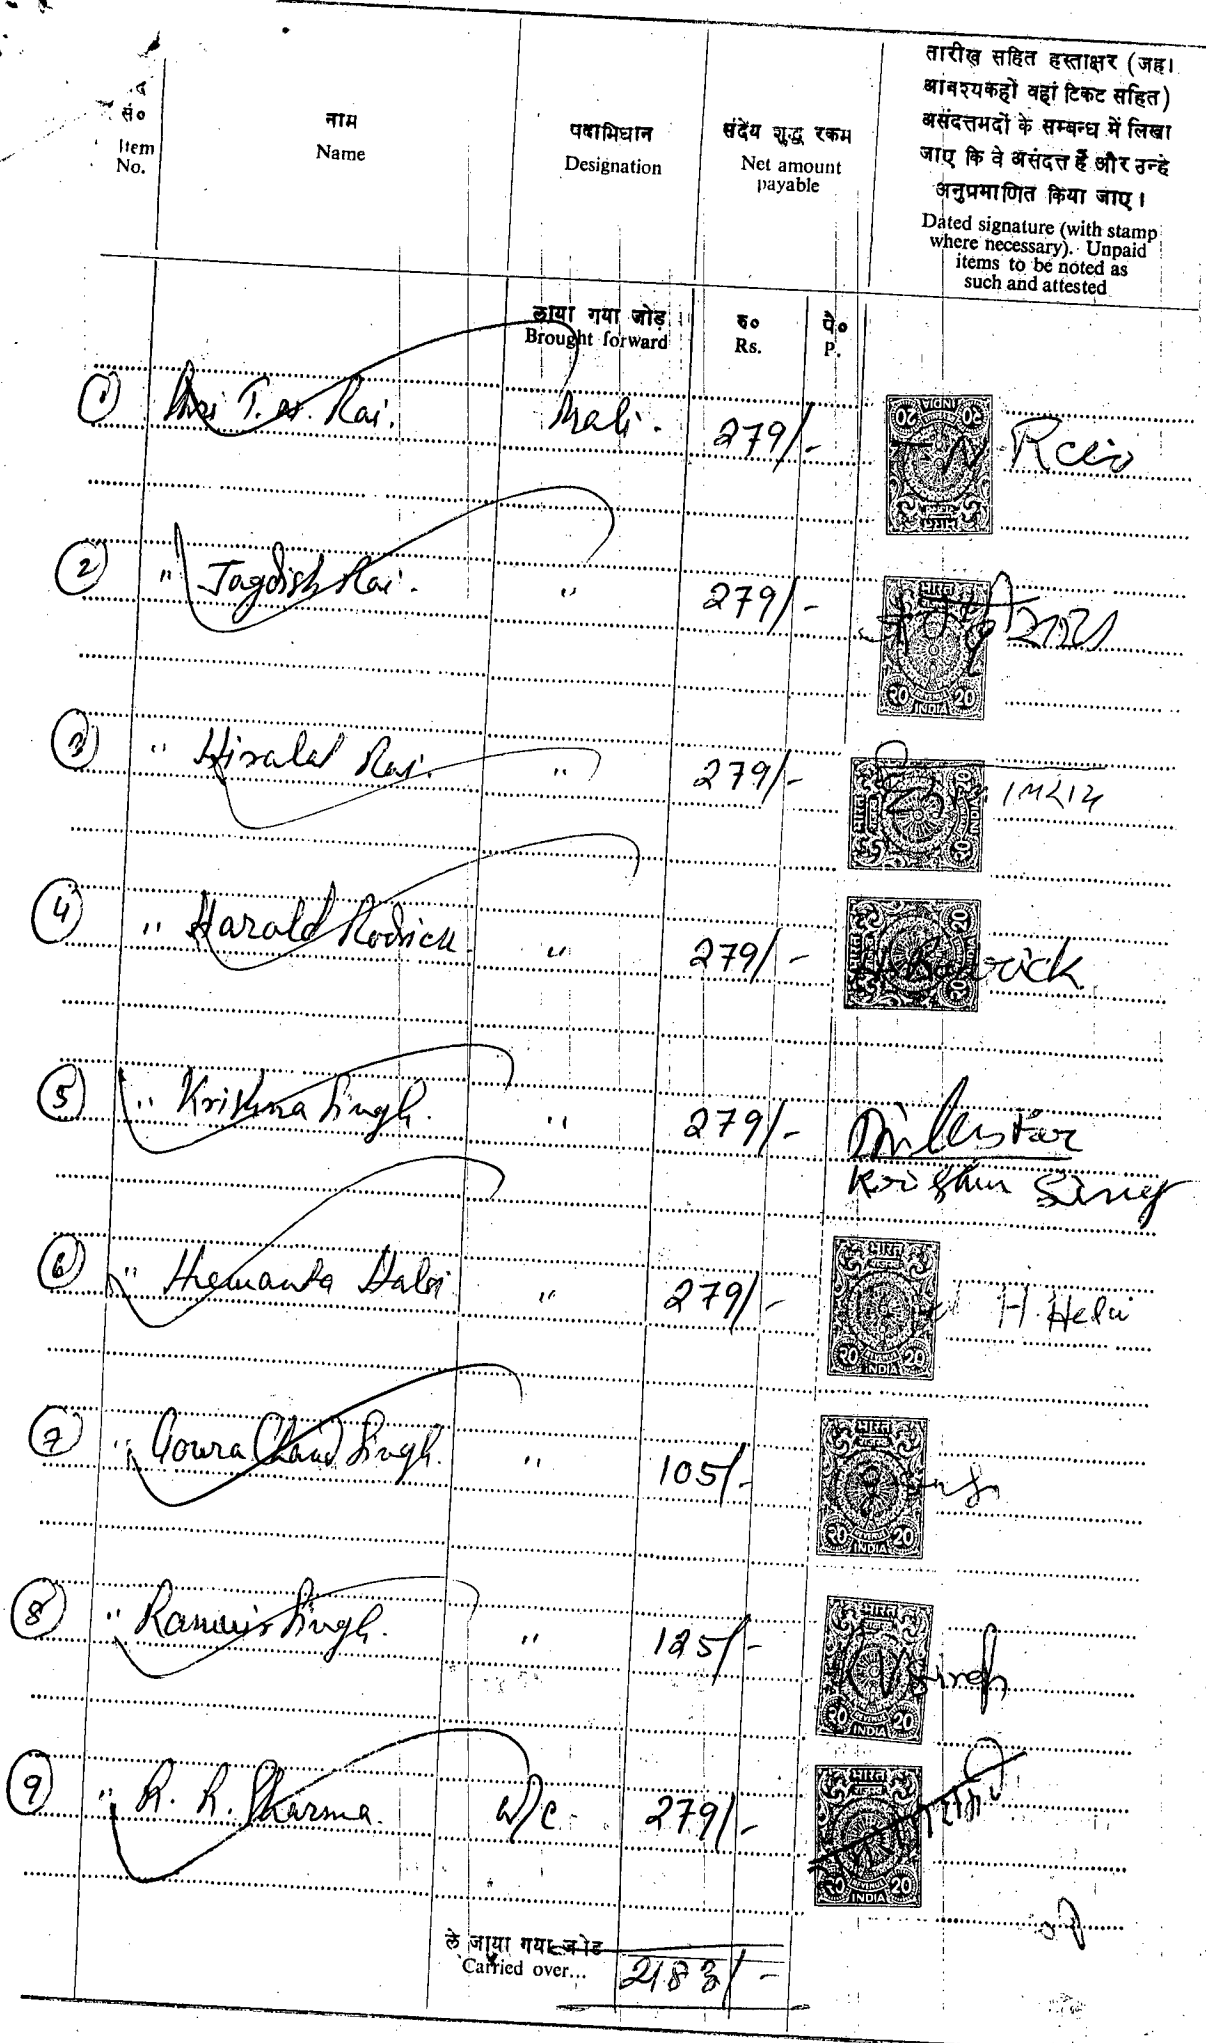 सं०
Item
No.
नाम
Name
पदाभिधान
Designation
संदेय शुद्ध रकम
Net amount
payable
तारीख सहित हस्ताक्षर (जहां
आवश्यकहों वहां टिकट सहित)
असंदत्तमदों के सम्बन्ध में लिखा
जाए कि वे असंदत्त हैं और उन्हे
अनुप्रमाणित किया जाए।
Dated signature (with stamp
where necessary). Unpaid
items to be noted as
such and attested
लाया गया जोड़
Brought forward
रु०
Rs.
पै०
P.
1 Shri T. N. Rai. Mali. 279/- T N Rai
2 " Jagdish Rai. " 279/-
3 " Hiralal Rai. " 279/-
4 " Harald Rodrick " 279/-
5 " Krishna Singh. " 279/-
Krishna Sing
6 " Hemanta " 279/- H.
7 " Goura Chand Singh. " 105/-
8 " Singh. " 125/- Singh
9 " R. R. Sharma. W/C 279/-
ले जाया गया जोड
Carried over... 2183/-